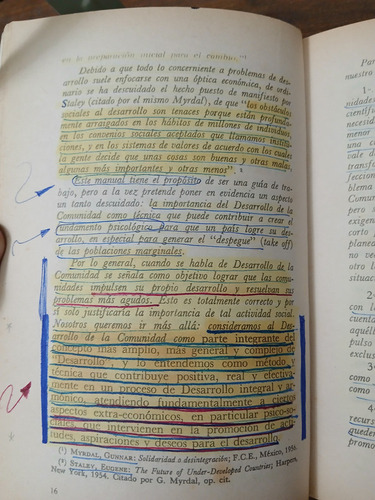 en la preparación inicial para el cambio."¹
Debido a que todo lo concerniente a problemas de des-
arrollo suele enfocarse con una óptica económica, de ordi-
nario se ha descuidado el hecho puesto de manifiesto por
Staley (citado por el mismo Myrdal), de que "los obstáculos
sociales al desarrollo son tenaces porque están profunda-
mente arraigados en los hábitos de millones de individuos,
en los convenios sociales aceptados que llamamos institu-
ciones, y en los sistemas de valores de acuerdo con los cuales
la gente decide que unas cosas son buenas y otras malas,
algunas más importantes y otras menos".²
Este manual tiene el propósito de ser una guía de tra-
bajo, pero a la vez pretende poner en evidencia un aspecto
un tanto descuidado: la importancia del Desarrollo de la
Comunidad como técnica que puede contribuir a crear el
fundamento psicológico para que un país logre su des-
arrollo, en especial para generar el "despegue" (take off)
de las poblaciones marginales.
Por lo general, cuando se habla de Desarrollo de la
Comunidad se señala como objetivo lograr que las comu-
nidades impulsen su propio desarrollo y resuelvan sus
problemas más agudos. Esto es totalmente correcto y por
sí solo justificaría la importancia de tal actividad social.
Nosotros queremos ir más allá: consideramos al Des-
arrollo de la Comunidad como parte integrante del
concepto más amplio, más general y complejo de
"Desarrollo", y lo entendemos como método y
técnica que contribuye positiva, real y efectiva-
mente en un proceso de Desarrollo integral y ar-
mónico, atendiendo fundamentalmente a ciertos
aspectos extra-económicos, en particular psico-so-
ciales, que intervienen en la promoción de acti-
tudes, aspiraciones y deseos para el desarrollo.
(¹) MYRDAL, GUNNAR: Solidaridad o desintegración; F.C.E., México, 1956.
(²) STALEY, EUGENE: The Future of Under-Developed Countries; Harper,
New York, 1954. Citado por G. Myrdal, op. cit.
16